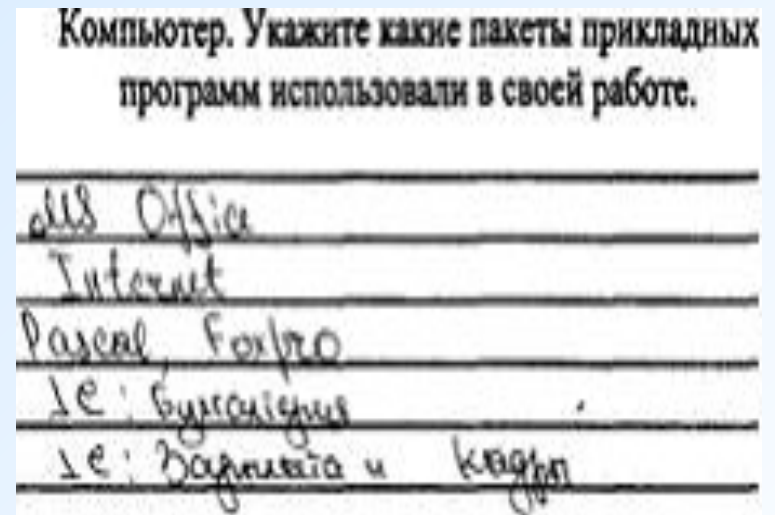 Компьютер. Укажите какие пакеты прикладных
программ использовали в своей работе.
MS Office
Internet
Pascal, FoxPro
1С: Бухгалтерия
1С: Зарплата и Кадры